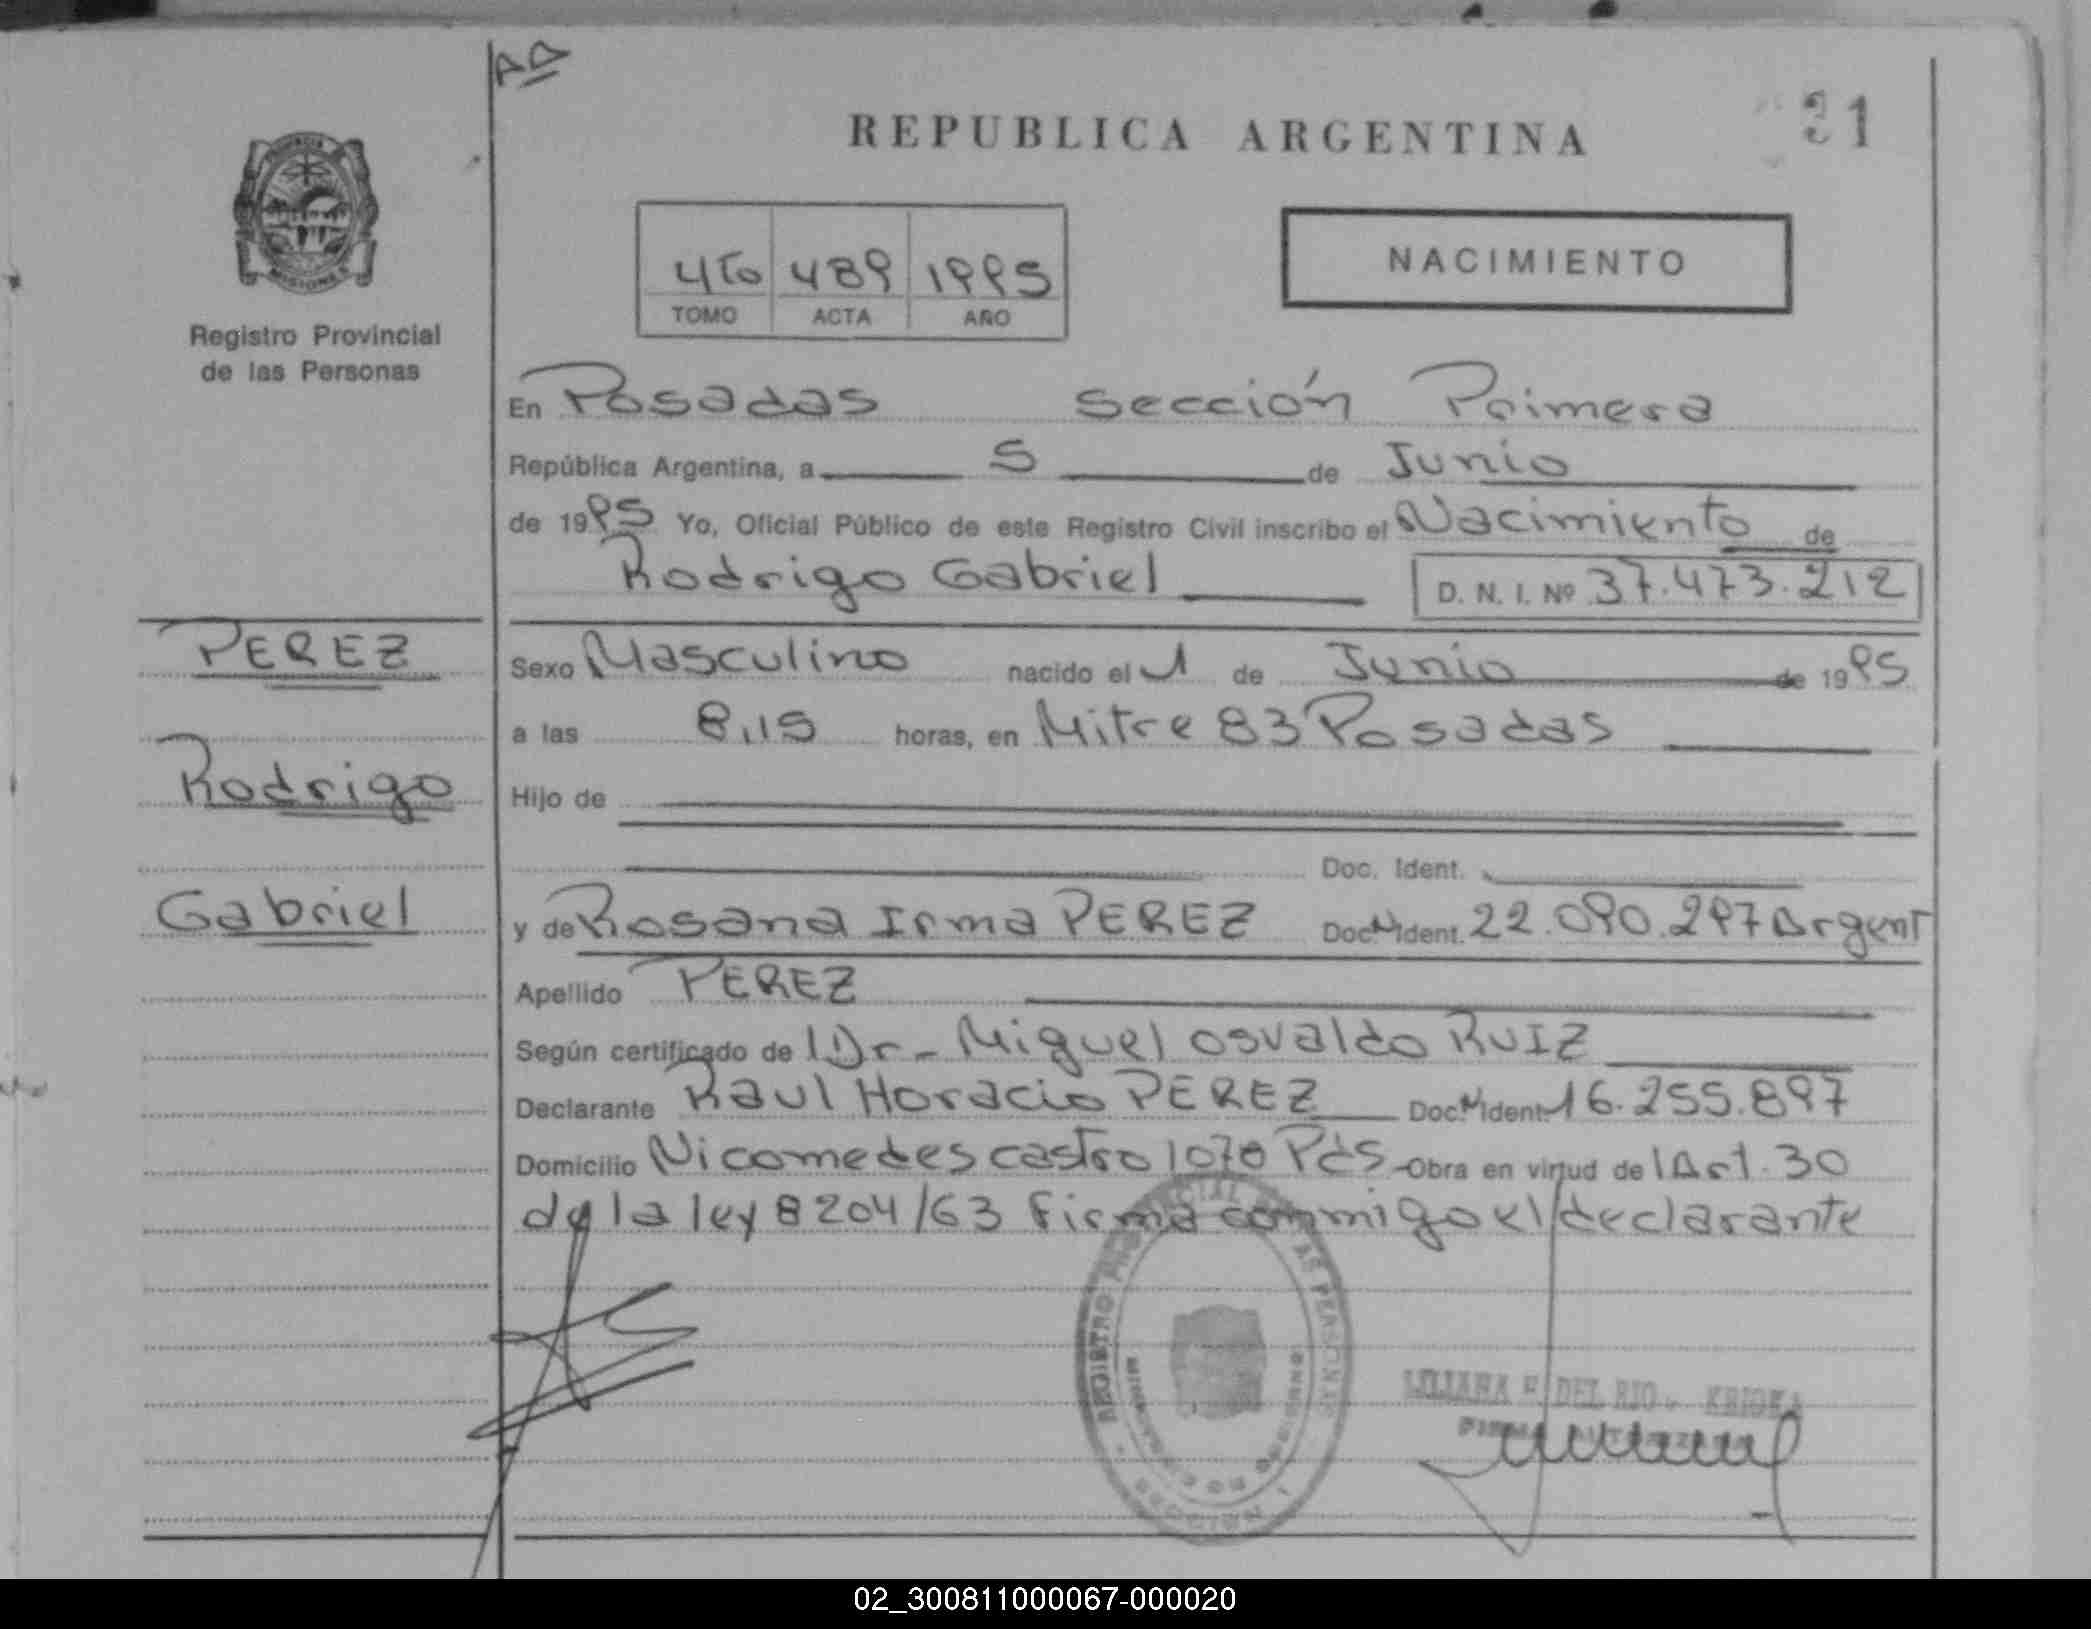 REPUBLICA ARGENTINA
31
Registro Provincial
de las Personas
4to 489 1995
TOMO ACTA AÑO
NACIMIENTO
En Posadas Sección Primera
República Argentina, a 5 de Junio
de 1995 Yo, Oficial Público de este Registro Civil inscribo el Nacimiento de
Rodrigo Gabriel D. N. I. Nº 37.473.212
PEREZ
Rodrigo
Gabriel
Sexo Masculino nacido el 1 de Junio de 1995
a las 8,15 horas, en Mitre 83 Posadas
Hijo de
Doc. Ident.
y de Rosana Irma PEREZ Doc. N Ident. 22.090.297 Argent
Apellido PEREZ
Según certificado de Dr - Miguel Osvaldo RUIZ
Declarante Raul Horacio PEREZ Doc. N Ident. 16.255.897
Domicilio Nicomedes castro 1070 Pds - Obra en virtud del Art. 30
de la ley 8204/63 Firma conmigo el declarante
REGISTRO PROVINCIAL DE LAS PERSONAS
MISIONES
LILIANA DEL RIO
FIRMA AUTORIZADA
02_300811000067-000020